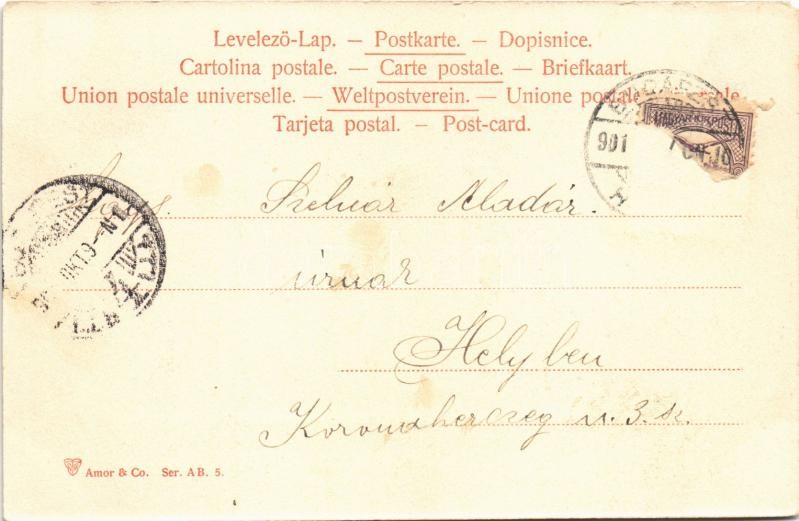 Levelező-Lap. — Postkarte. — Dopisnice.
Cartolina postale. — Carte postale. — Briefkaart.
Union postale universelle. — Weltpostverein. — Unione postale
Tarjeta postal. — Post-card.
MAGYAR KIR. POSTA
901
OKT. 9
Aladár
úrnak
Helyben
Koronaherczeg u. 3. sz.
Amor & Co. Ser. AB. 5.